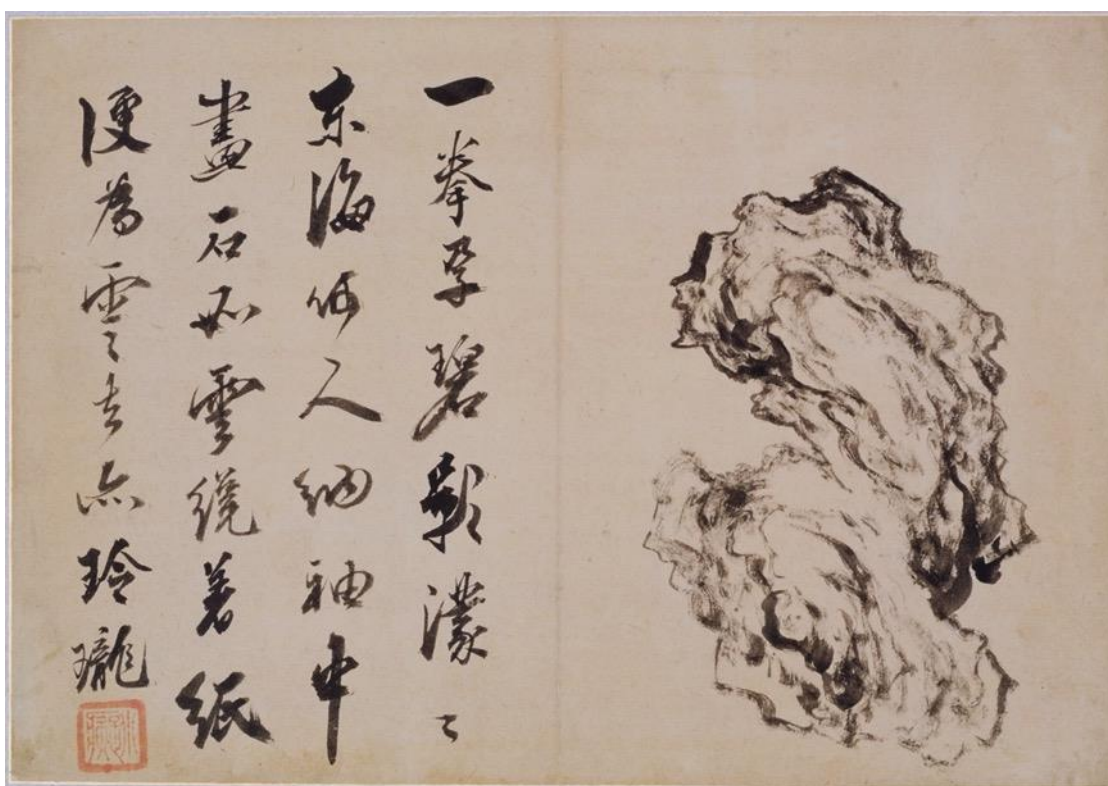 一拳孕碧影濛〻
東海何人納袖中
畫石如雲纔著紙
便為雲去亦玲瓏